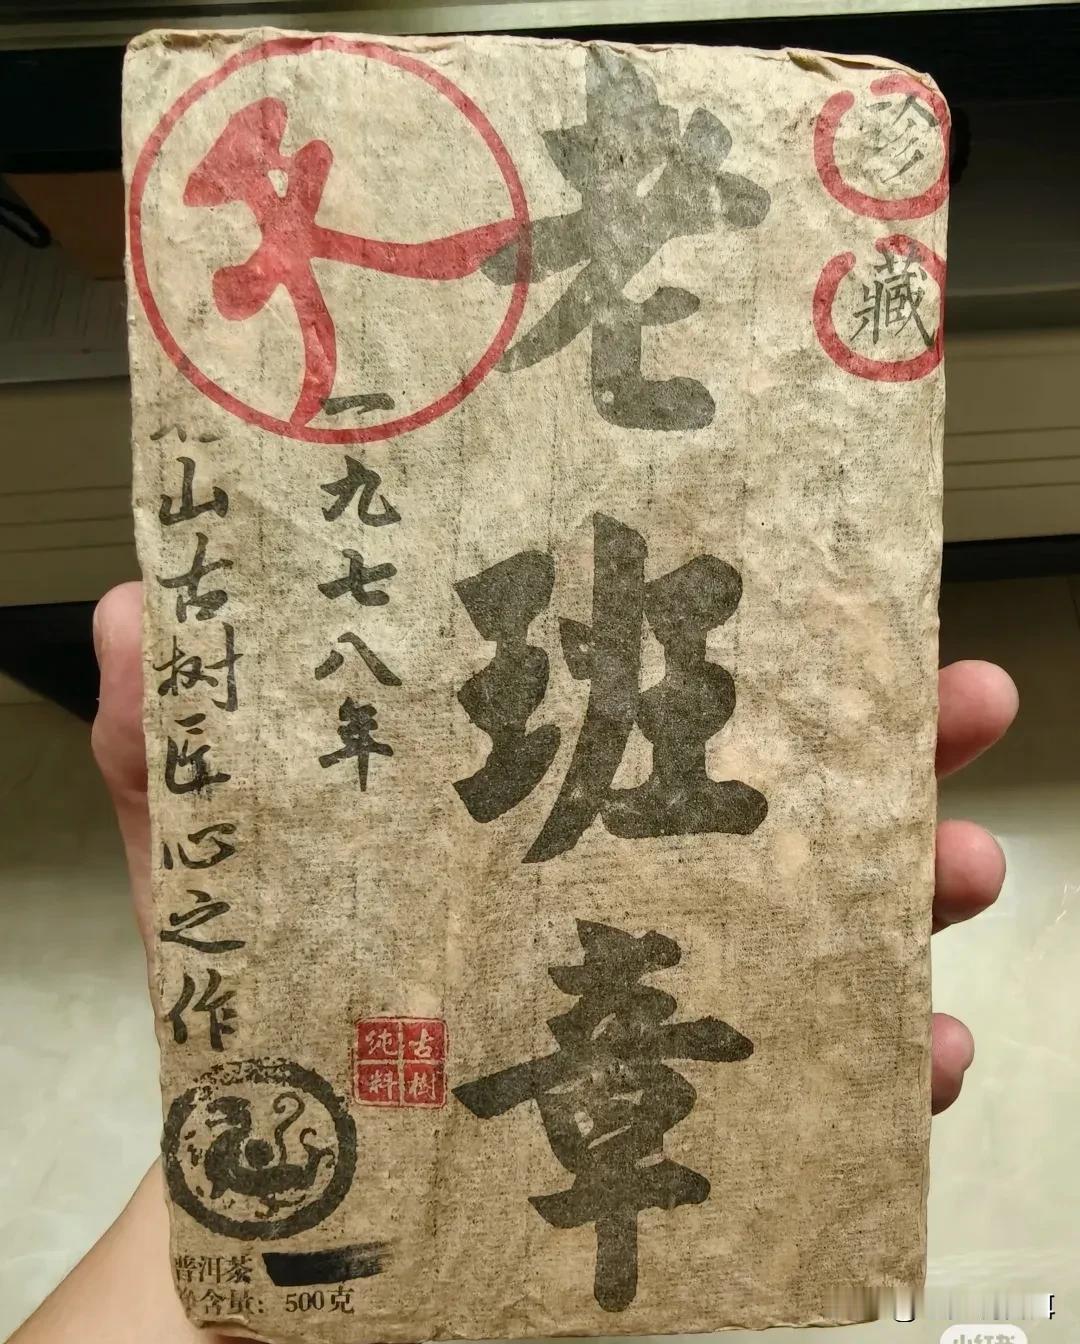 珍藏
老班章
一九七八年
山古树匠心之作
古樹
纯料
普洱茶
净含量：500克
小红书